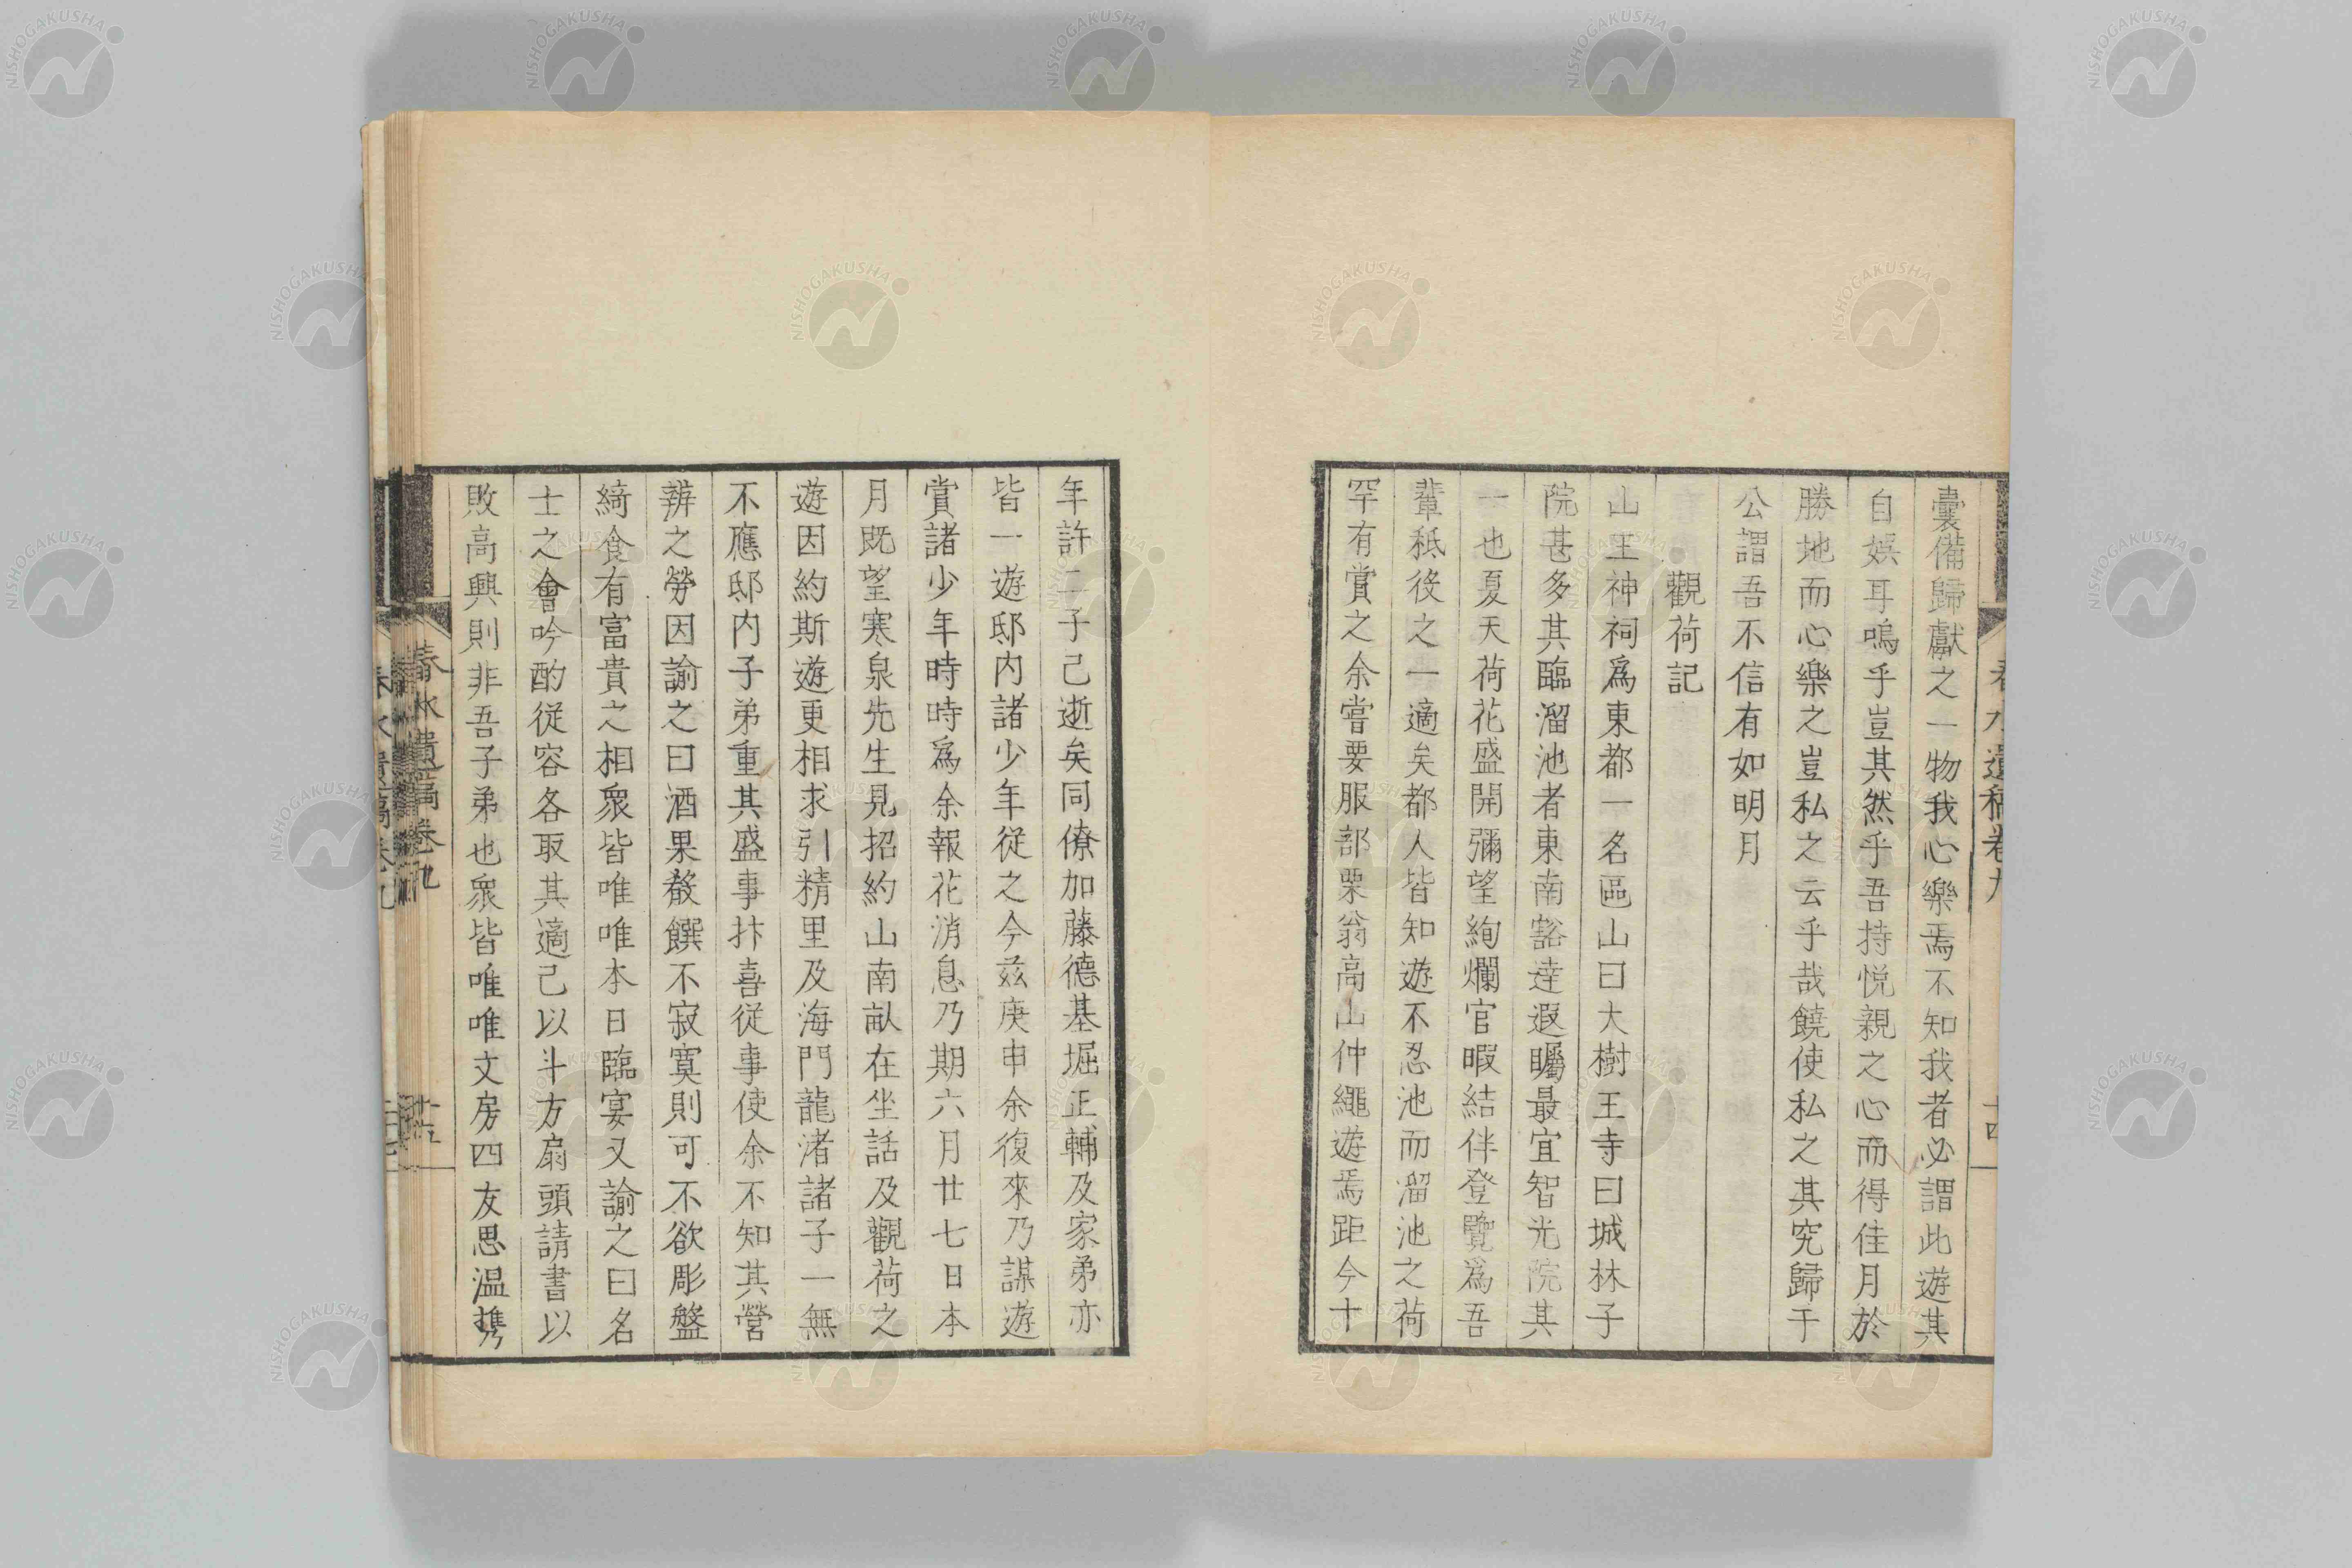 囊備歸獻之一物我心樂焉不知我者必謂此遊其
自娯耳嗚乎豈其然乎吾持悦親之心而得佳月於
勝地而心樂之豈私之云乎哉饒使私之其究歸于
公謂吾不信有如明月
觀荷記
山王神祠爲東都一名區山曰大樹王寺曰城林子
院甚多其臨溜池者東南豁達遐矚最宜智光院其
一也夏天荷花盛開彌望絢爛官暇結伴登覽爲吾
輩秖役之一適矣都人皆知遊不忍池而溜池之荷
罕有賞之余嘗要服部栗翁高山仲繩遊焉距今十
年許二子已逝矣同僚加藤德基堀正輔及家弟亦
皆一遊邸内諸少年從之今玆庚申余復來乃謀遊
賞諸少年時時爲余報花消息乃期六月廿七日本
月既望寒泉先生見招約山南畝在坐話及觀荷之
遊因約斯遊更相求引精里及海門龍渚諸子一無
不應邸内子弟重其盛事抃喜從事使余不知其營
辨之勞因諭之曰酒果殽饌不寂寞則可不欲彫盤
綺食有富貴之相衆皆唯唯本日臨宴又諭之曰名
士之會吟酌從容各取其適己以斗方扇頭請書以
敗高興則非吾子弟也衆皆唯唯文房四友思温携
春水遺稿卷九
十四
春水遺稿卷九
十五